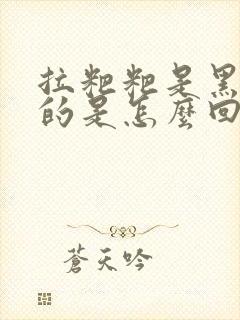 拉粑粑是黑
的是怎麼回
蒼天吟